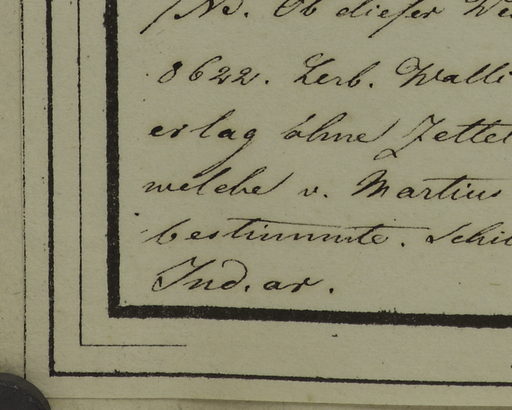 NB. Ob dieser
8622. Herb. Walli
erlag ohne Zettel
welche v. Martius
bestimmte. Schi
Ind. ar.